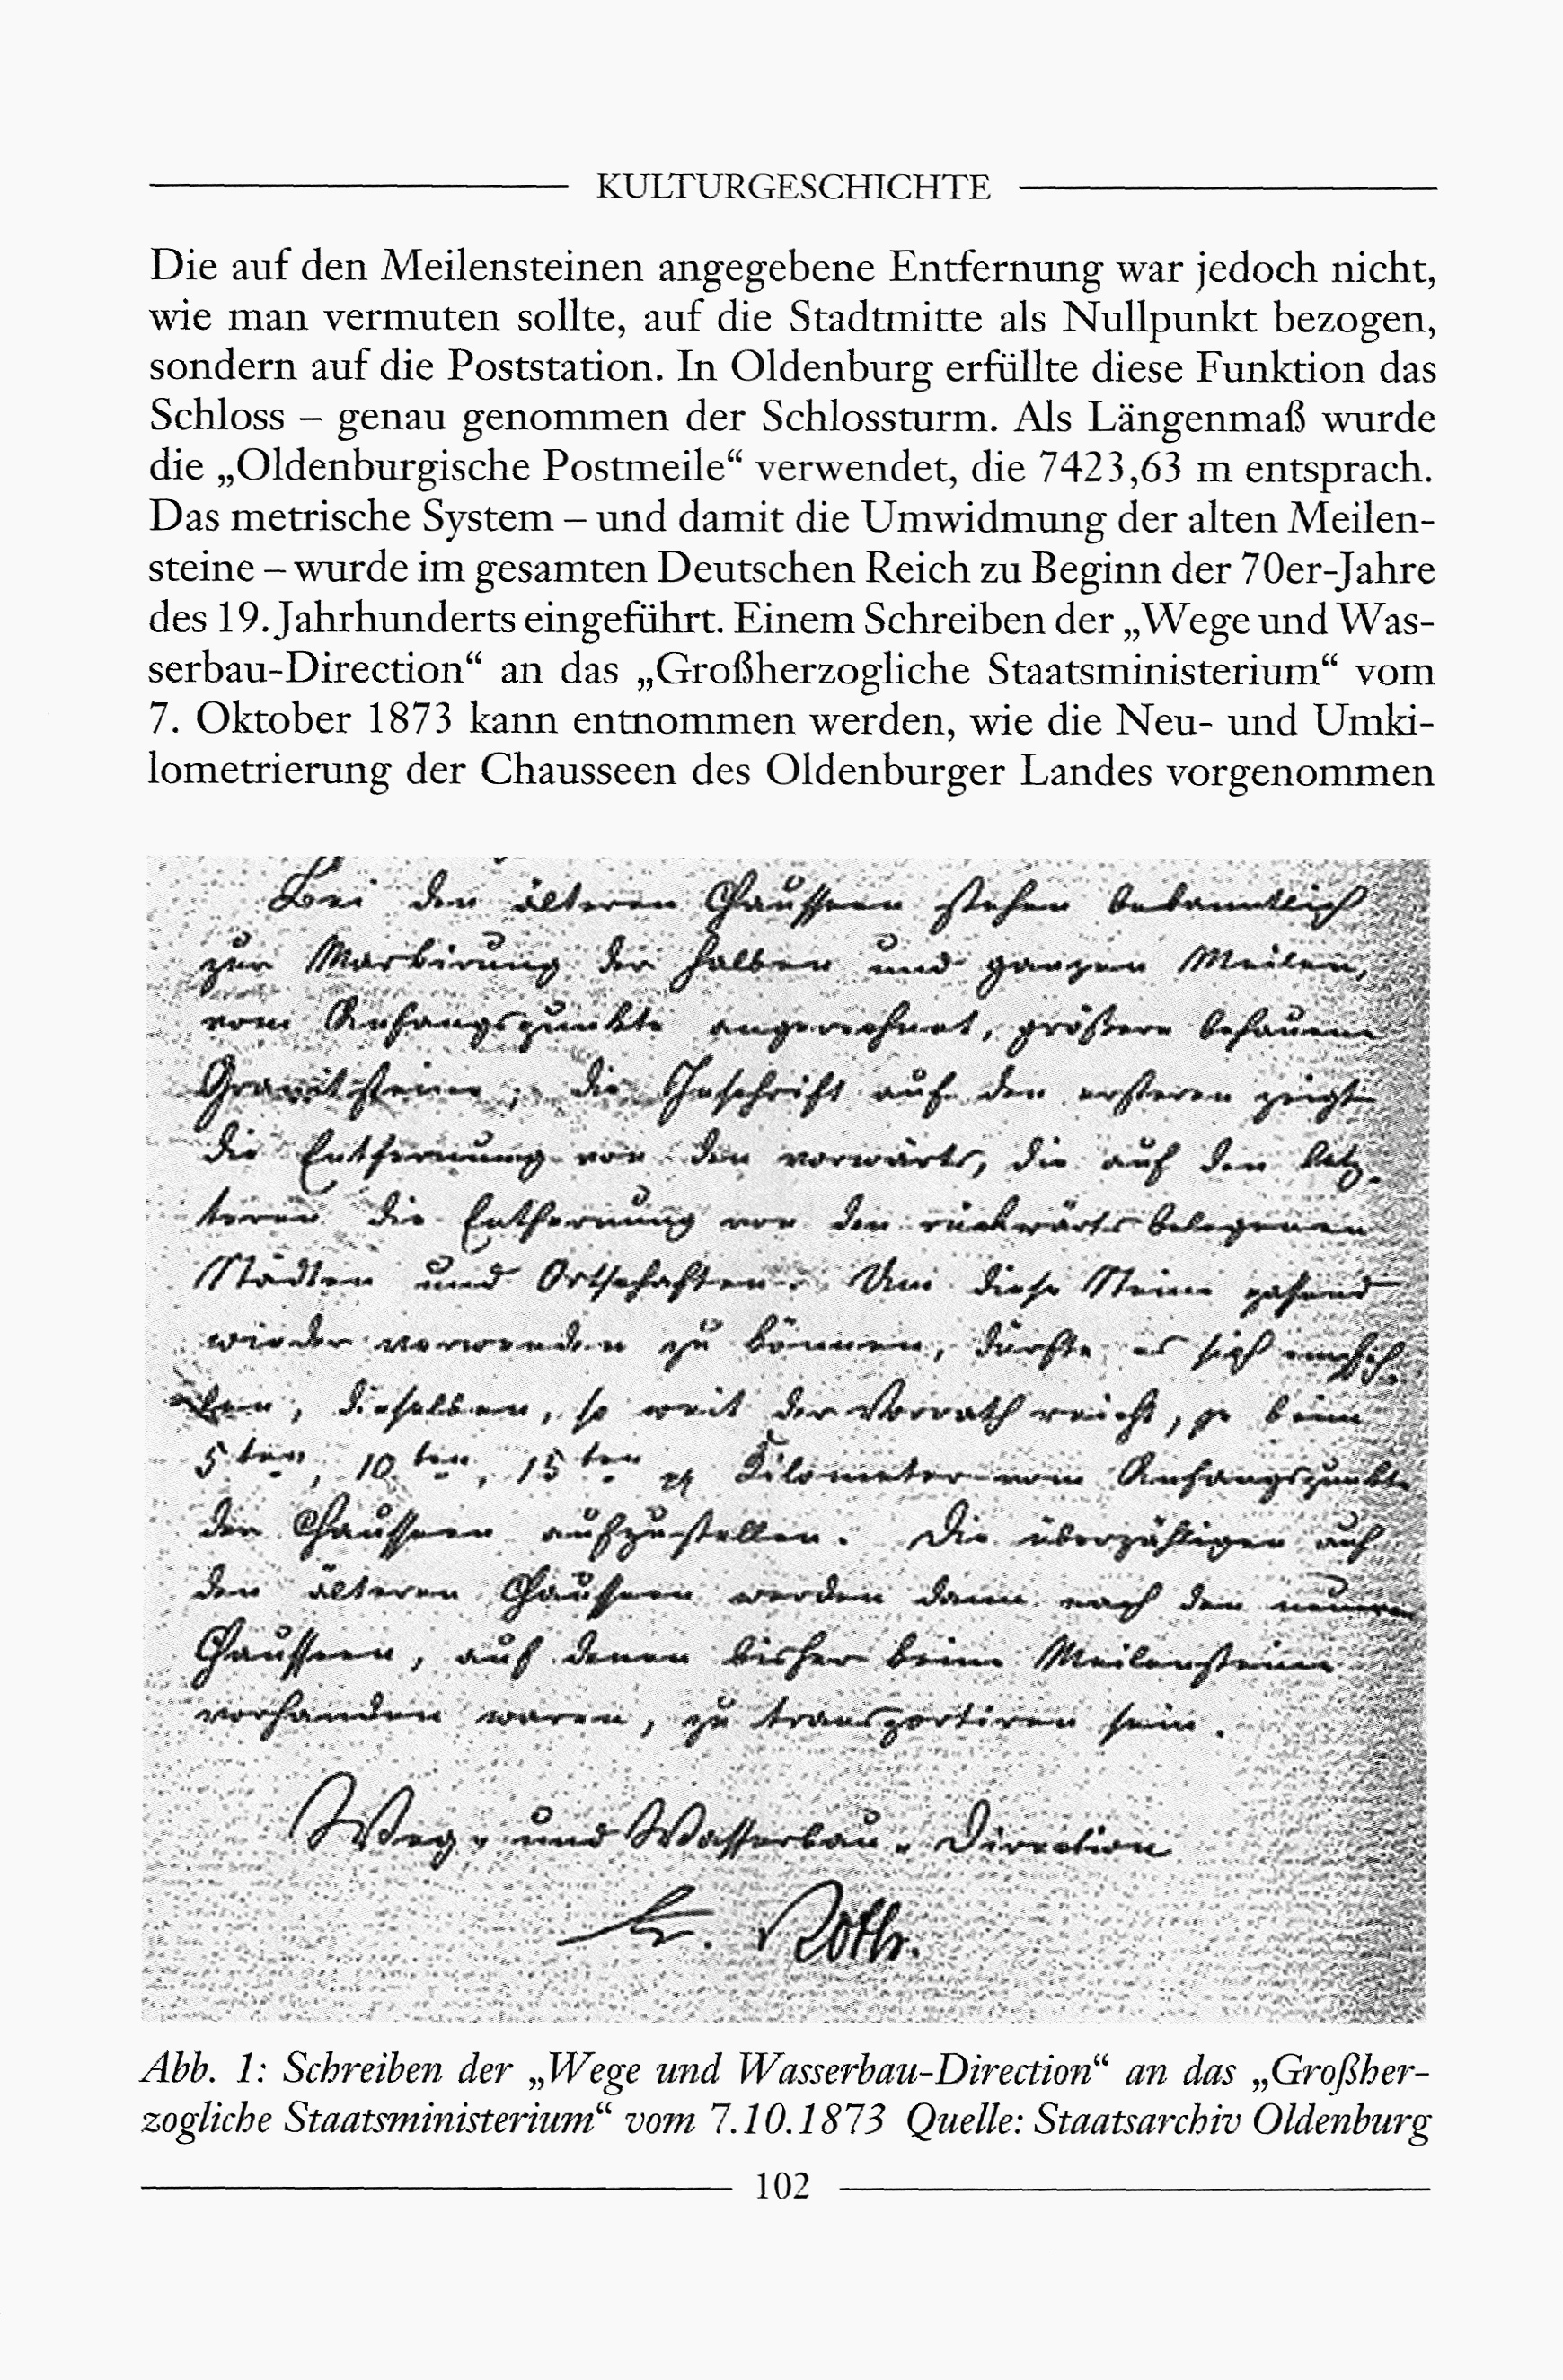 KULTURGESCHICHTE
Die auf den Meilensteinen angegebene Entfernung war jedoch nicht,
wie man vermuten sollte, auf die Stadtmitte als Nullpunkt bezogen,
sondern auf die Poststation. In Oldenburg erfüllte diese Funktion das
Schloss – genau genommen der Schlossturm. Als Längenmaß wurde
die „Oldenburgische Postmeile“ verwendet, die 7423,63 m entsprach.
Das metrische System – und damit die Umwidmung der alten Meilen-
steine – wurde im gesamten Deutschen Reich zu Beginn der 70er-Jahre
des 19. Jahrhunderts eingeführt. Einem Schreiben der „Wege und Was-
serbau-Direction“ an das „Großherzogliche Staatsministerium“ vom
7. Oktober 1873 kann entnommen werden, wie die Neu- und Umki-
lometrierung der Chausseen des Oldenburger Landes vorgenommen
Bei den älteren Chausseen stehen bekanntlich
zur Markirung der halben und ganzen Meilen,
vom Anfangspunkte angerechnet, größere behauene
Granitsteine; die Inschrift auf den ersteren zeigt
die Entfernung von den vorwärts, die auf den letz-
teren die Entfernung von den rückwärts belegenen
Städten und Ortschaften. Um diese Steine passend
wieder verwenden zu können, dürfte es sich empfeh-
len, dieselben, so weit der Vorrath reicht, je beim
5ten, 10ten, 15ten Kilometer vom Anfangspunkte
der Chausseen aufzustellen. Die überzähligen auf
den älteren Chausseen werden dann nach den neueren
Chausseen, auf denen bisher keine Meilensteine
vorhanden waren, zu transportiren sein.
Weg- und Wasserbau-Direction
Roth.
Abb. 1: Schreiben der „Wege und Wasserbau-Direction“ an das „Großher-
zogliche Staatsministerium“ vom 7.10.1873 Quelle: Staatsarchiv Oldenburg
102